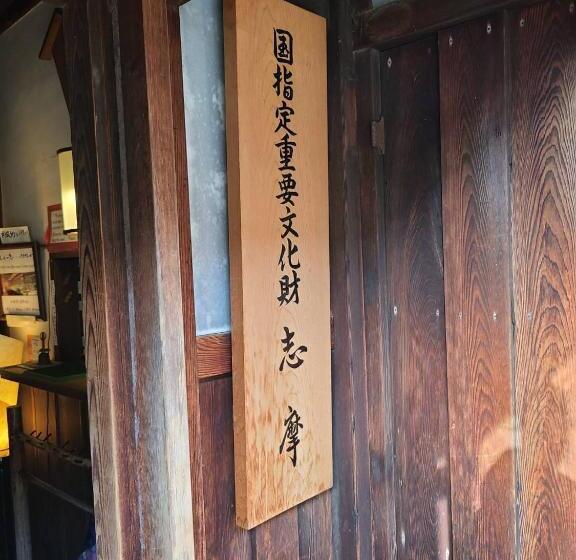 国指定重要文化財 志摩